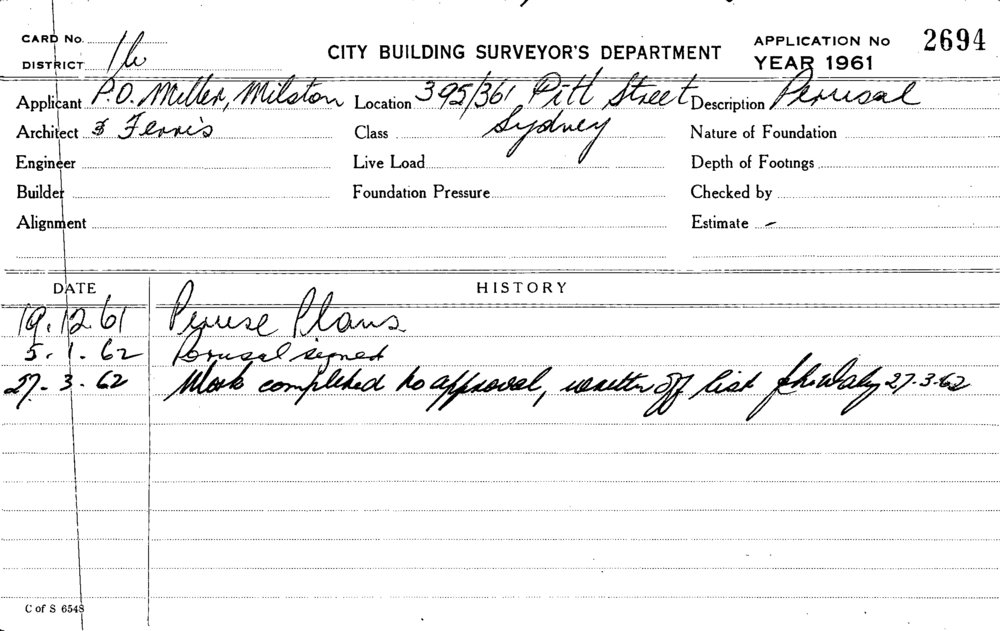 CARD No.
DISTRICT 1b
CITY BUILDING SURVEYOR'S DEPARTMENT
APPLICATION No 2694
YEAR 1961
Applicant P.O. Miller, Milston Location 395/361 Pitt Street Description Perusal
Architect & Ferris Class Sydney Nature of Foundation
Engineer Live Load Depth of Footings
Builder Foundation Pressure Checked by
Alignment Estimate -
DATE HISTORY
19.12.61 Peruse Plans
5.1.62 Perusal signed
27.3.62 Work completed to approval, written off list 27.3.62
C of S 6548